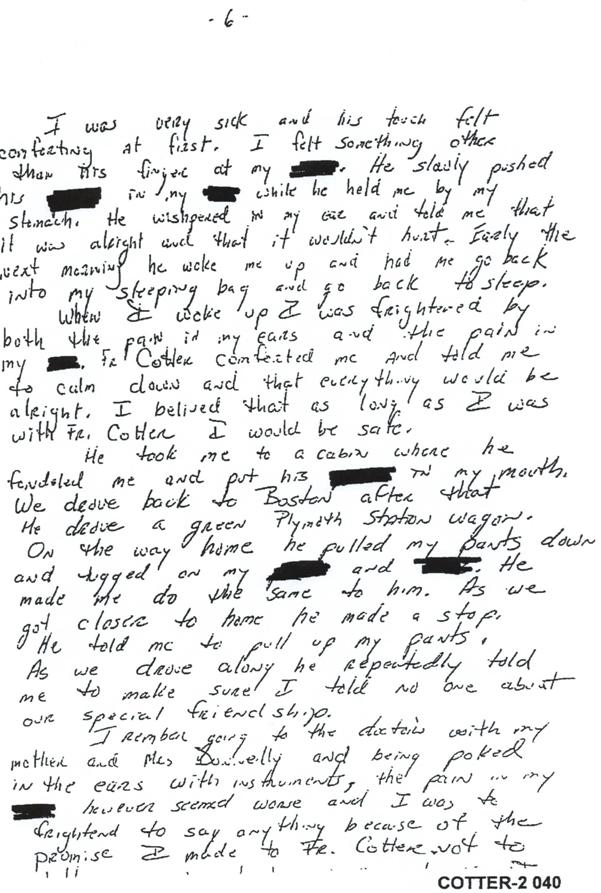 - 6 -
I was very sick and his touch felt
comforting at first. I felt something other
than his finger at my . He slowly pushed
his in my while he held me by my
stomach. He wishpered in my ear and told me that
it was alright and that it wouldn't hurt. Early the
next morning he woke me up and had me go back
into my sleeping bag and go back to sleep.
When I woke up I was frightered by
both the pain in my ears and the pain in
my . Fr Cotter comforted me and told me
to calm down and that everything would be
alright. I belived that as long as I was
with Fr. Cotter I would be safe.
He took me to a cabin where he
fondeled me and put his in my mouth.
We drove back to Boston after that
He drove a green Plymoth Station wagon.
On the way home he pulled my pants down
and tugged on my and . He
made me do the same to him. As we
got closer to home he made a stop.
He told me to pull up my pants.
As we drove along he repeatedly told
me to make sure I told no one about
our special friendship.
I rember going to the doctors with my
mother and Mrs Donnelly and being poked
in the ears with instruments, the pain in my
however seemed worse and I was to
frightend to say anything because of the
promise I made to Fr. Cotter not to
COTTER-2 040